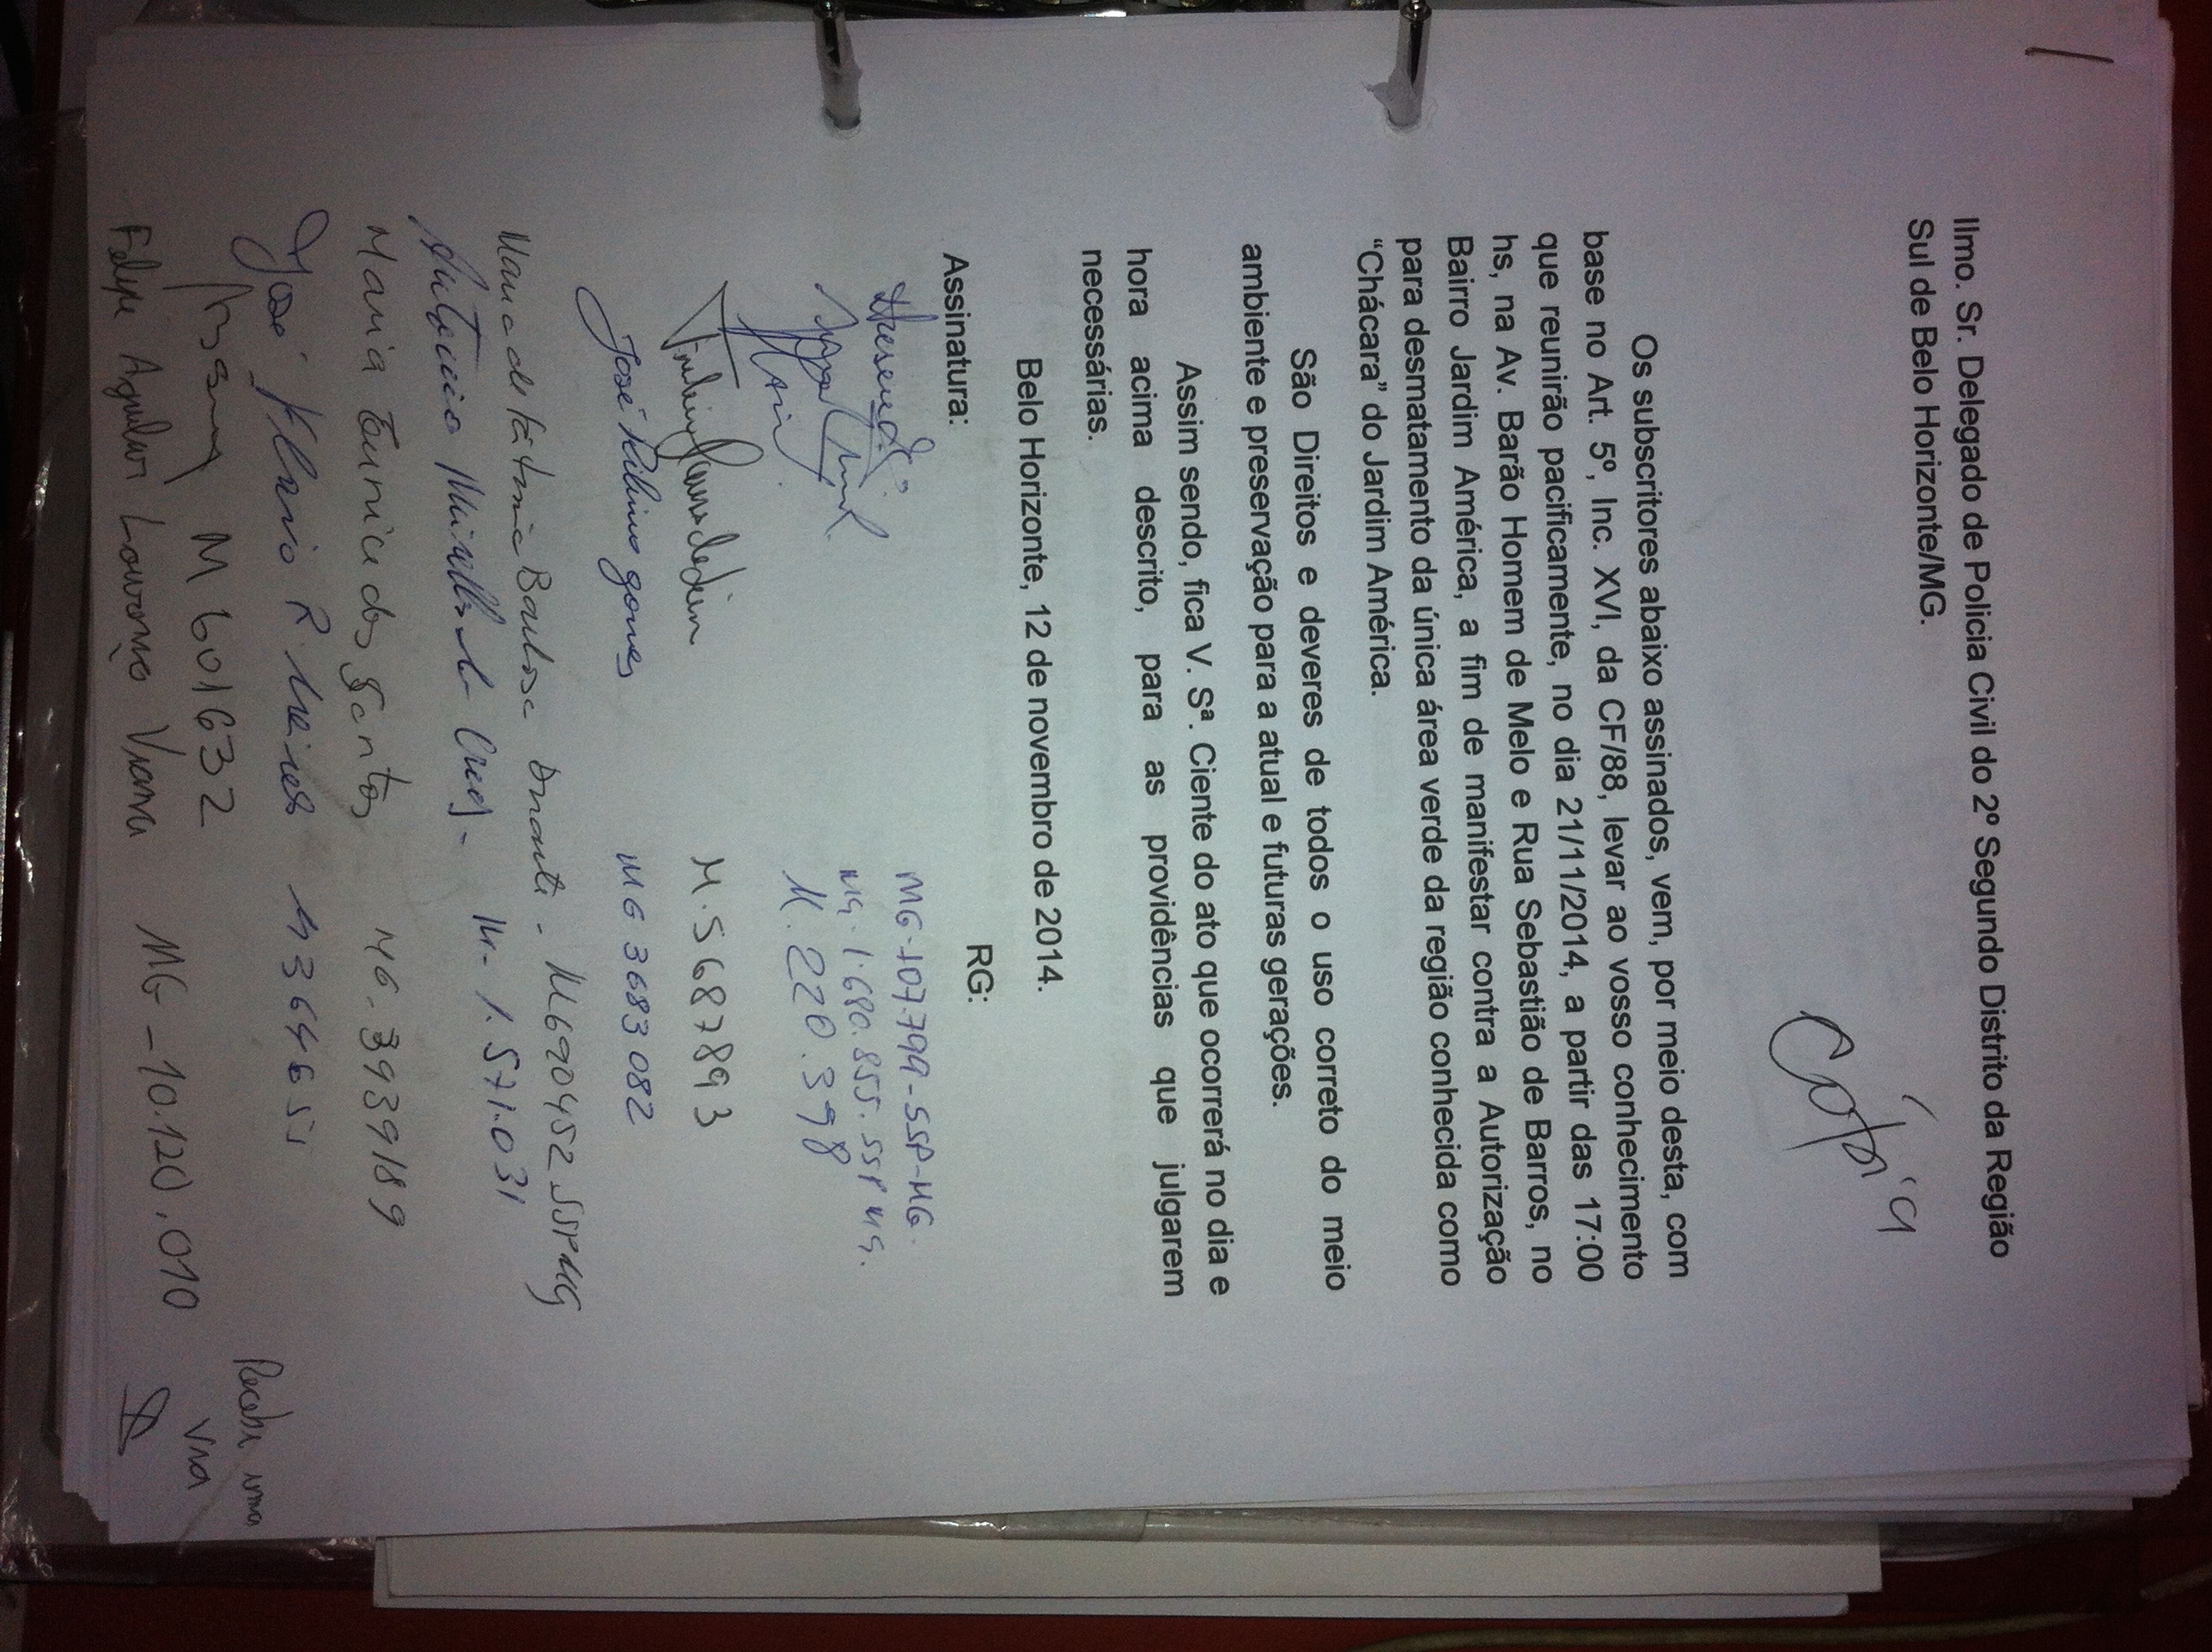 Cópia
Ilmo. Sr. Delegado de Policia Civil do 2º Segundo Distrito da Região
Sul de Belo Horizonte/MG.
Os subscritores abaixo assinados, vem, por meio desta, com
base no Art. 5º, Inc. XVI, da CF/88, levar ao vosso conhecimento
que reunirão pacificamente, no dia 21/11/2014, a partir das 17:00
hs, na Av. Barão Homem de Melo e Rua Sebastião de Barros, no
Bairro Jardim América, a fim de manifestar contra a Autorização
para desmatamento da única área verde da região conhecida como
“Chácara” do Jardim América.
São Direitos e deveres de todos o uso correto do meio
ambiente e preservação para a atual e futuras gerações.
Assim sendo, fica V. Sª. Ciente do ato que ocorrerá no dia e
hora acima descrito, para as providências que julgarem
necessárias.
Belo Horizonte, 12 de novembro de 2014.
Assinatura: RG:
MG-107.799-SSP-MG.
MG-1.680.855.SSP MG.
M.220.398
M.5687893
José gomes MG 3683082
Maria de Fátima Barbosa - M690452 SSPMG
M-1.571.031
Maria Eunice dos Santos MG.3939189
José R.
M601632
Felipe Lourenço Viana MG-10.120.010
Recebi uma
via